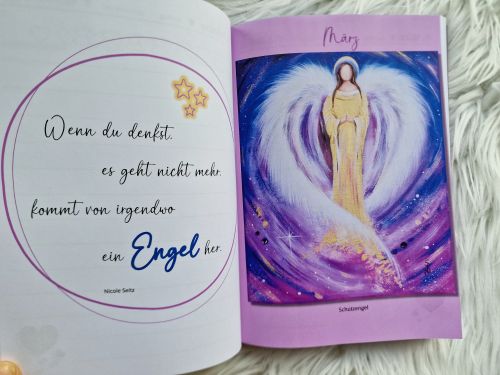 Wenn du denkst,
es geht nicht mehr,
kommt von irgendwo
ein Engel her.
Nicole Seitz
März
Schutzengel